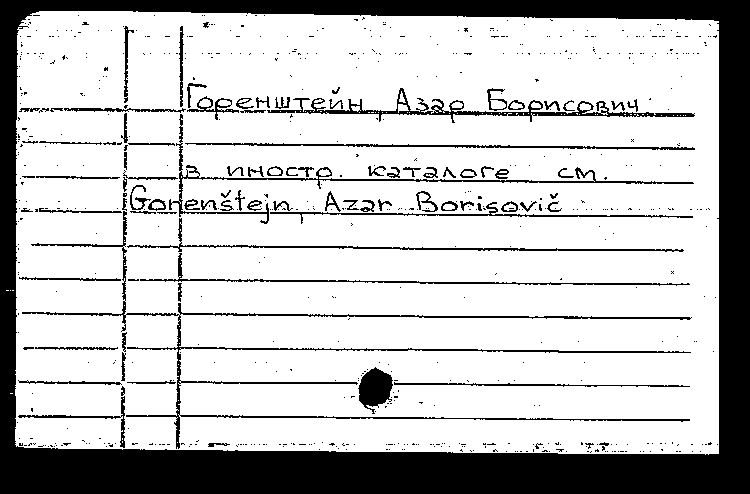 Горенштейн, Азар Борисович
в иностр. каталоге см.
Gorenštejn, Azar Borisovič